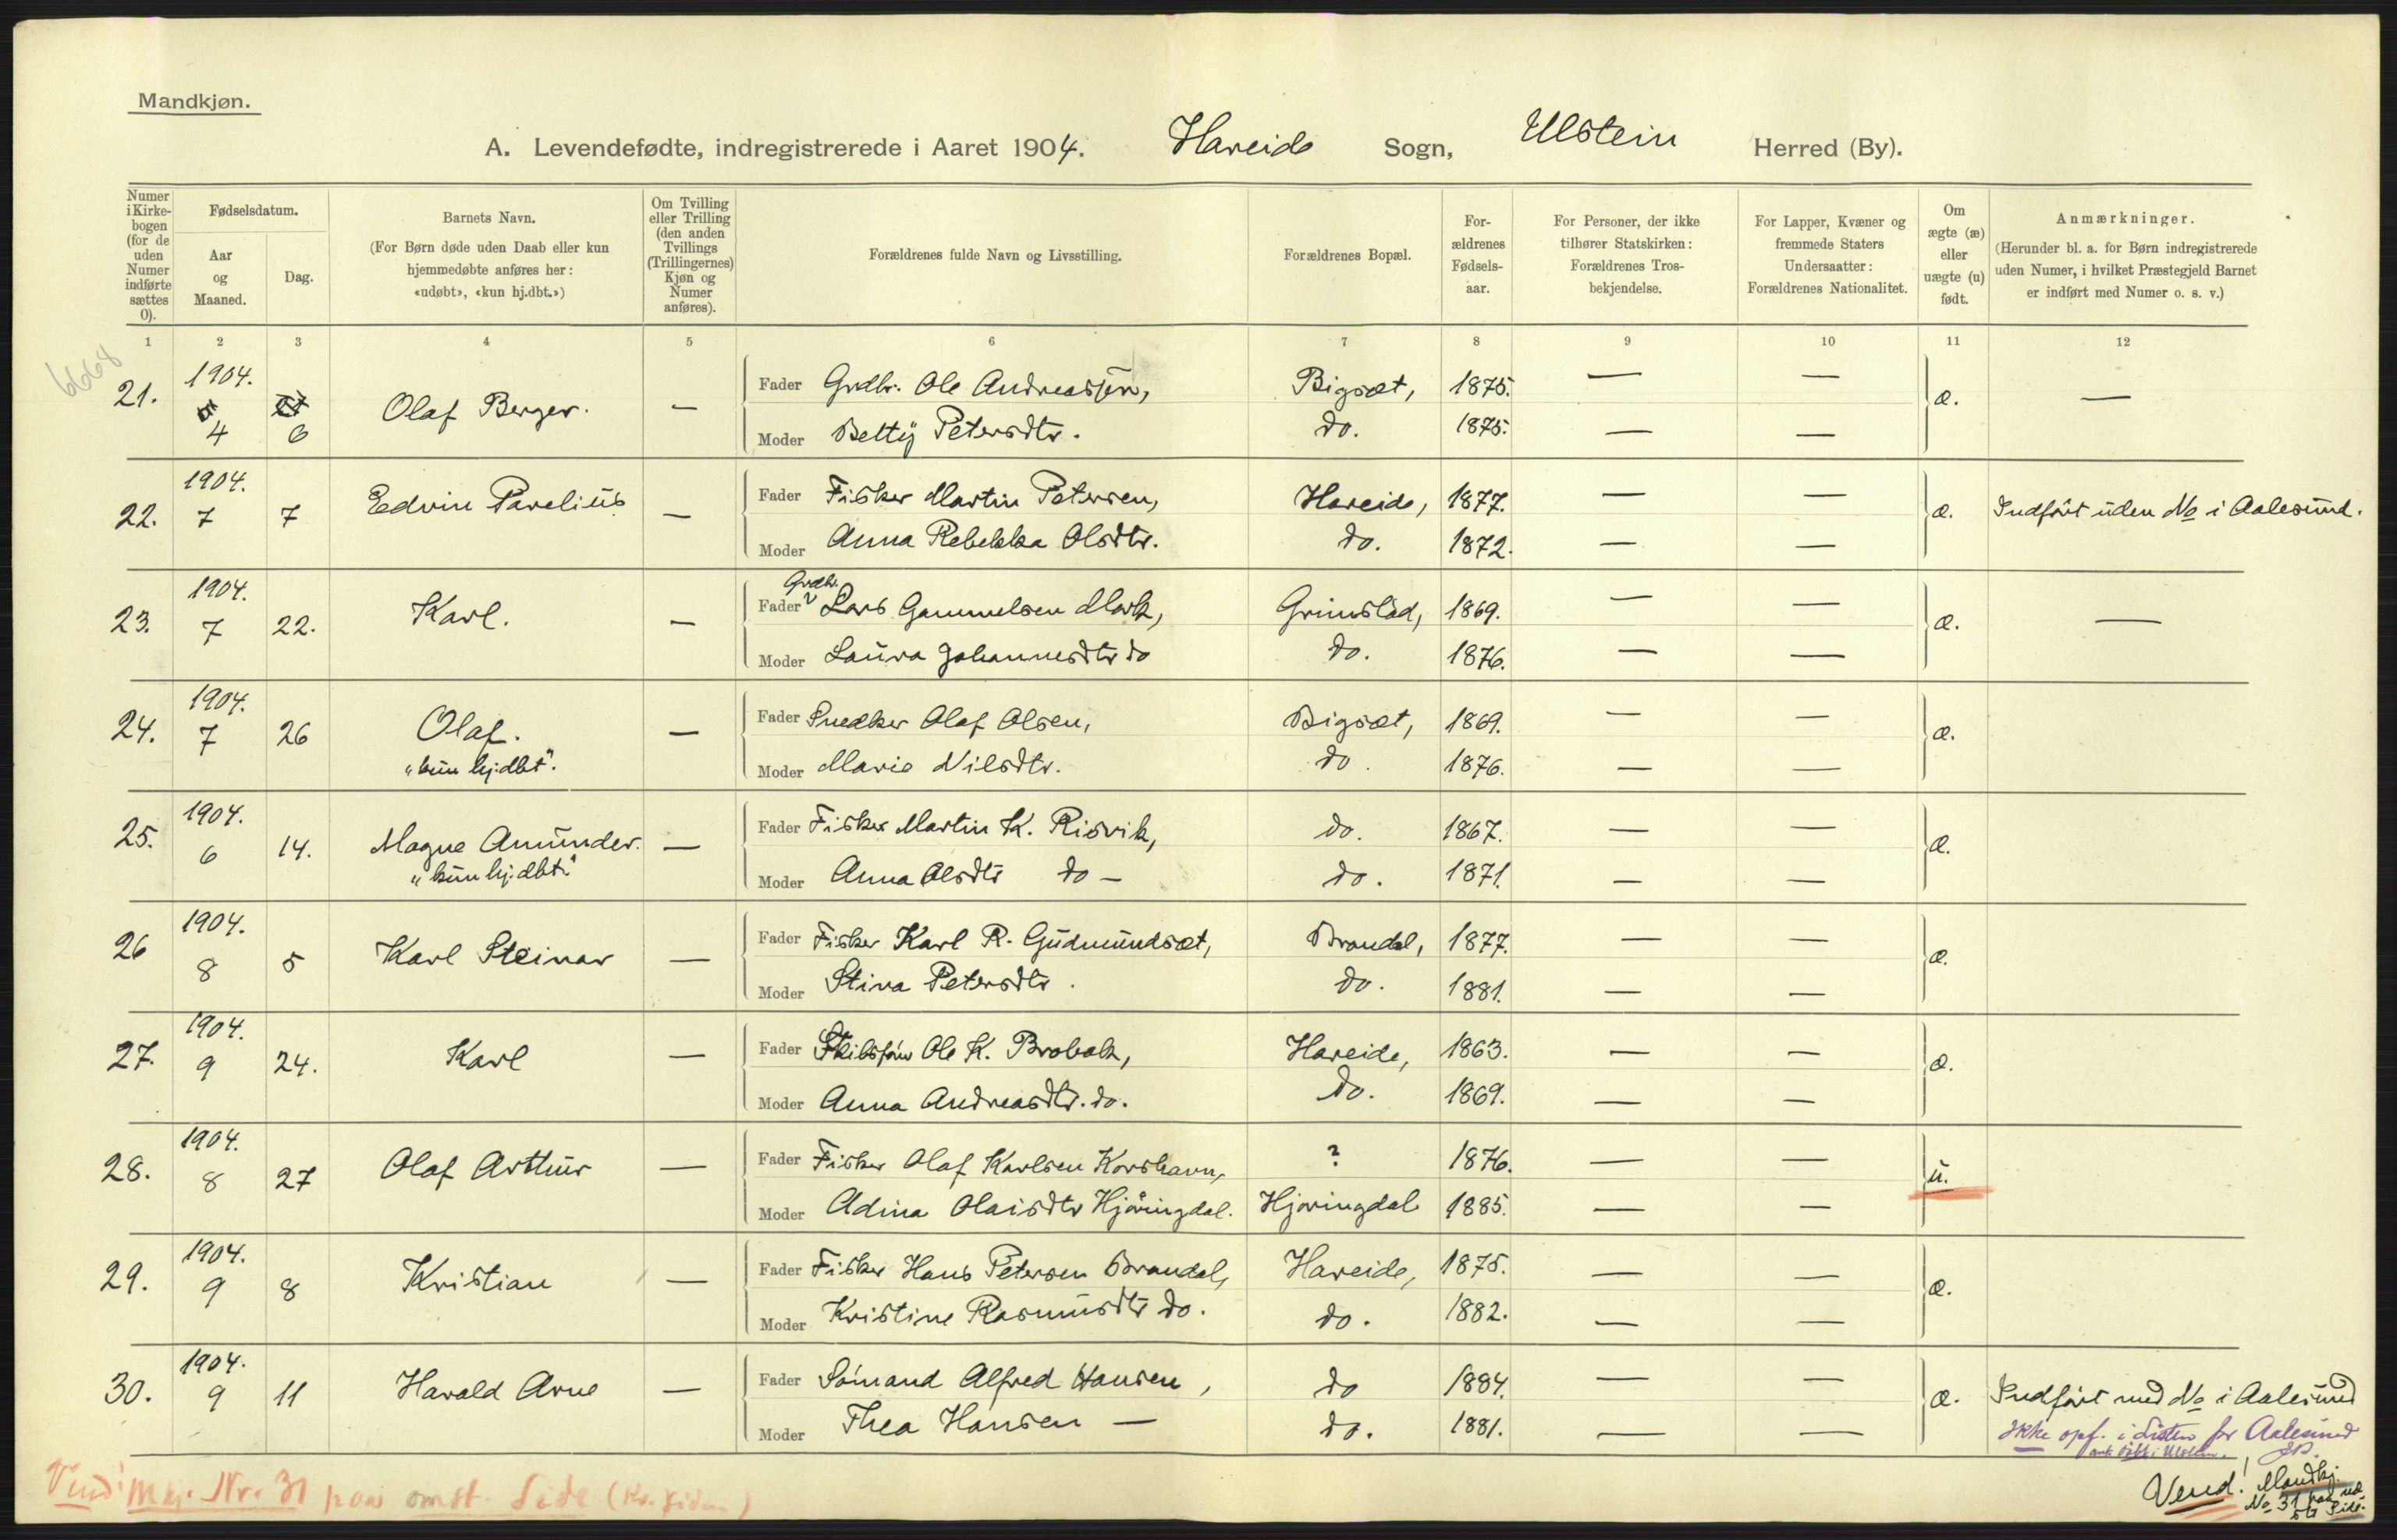 Mandkjøn.
A. Levendefødte, indregistrerede i Aaret 1904. Hareide Sogn, Ulstein Herred (By).
Numer i Kirkebogen (for de uden Numer indførte sættes 0).
Fødselsdatum.
Aar og Maaned.
Dag.
Barnets Navn.
(For Børn døde uden Daab eller kun hjemmedøbte anføres her: «udøbt», «kun hj.dbt.»)
Om Tvilling eller Trilling (den anden Tvillings (Trillingernes) Kjøn og Numer anføres).
Forældrenes fulde Navn og Livsstilling.
Forældrenes Bopæl.
Forældrenes Fødselsaar.
For Personer, der ikke tilhører Statskirken: Forældrenes Trosbekjendelse.
For Lapper, Kvæner og fremmede Staters Undersaatter: Forældrenes Nationalitet.
Om ægte (æ) eller uægte (u) født.
Anmærkninger.
(Herunder bl. a. for Børn indregistrerede uden Numer, i hvilket Præstegjeld Barnet er indført med Numer o. s. v.)
1 2 3 4 5 6 7 8 9 10 11 12
6668
21. 1904. 4 6 Olaf Berger. — Fader Grdbr. Ole Andreassen, Bigsæt, 1875. — — æ. —
Moder Betty Petersdtr. do. 1875. — —
22. 1904. 7 7 Edvin Parelius — Fader Fisker Martin Petersen, Hareide, 1877. — — æ. Indført uden No i Aalesund.
Moder Anna Rebekka Olsdtr. do. 1872. — —
23. 1904. 7 22. Karl. — Fader Grdbr. Lars Gammelsen Mork, Grimstad, 1869. — — æ. —
Moder Laura Johannesdtr do do. 1876. — —
24. 1904. 7 26 Olaf. — Fader Snedker Olaf Olsen, Bigsæt, 1869. — — æ.
"kun hj.dbt". Moder Marie Nilsdtr. do. 1876. — —
25. 1904. 6 14. Magne Amunder. — Fader Fisker Martin K. Risvik, do. 1867. — — æ.
"kun hj.dbt." Moder Anna Olsdtr do — do. 1871. — —
26 1904. 8 5 Karl Steinar — Fader Fisker Karl R. Gudmundsæt, Brandal, 1877. — — æ.
Moder Stina Petersdtr. do. 1881. — —
27. 1904. 9 24. Karl — Fader Skibsfører Ole K. Brobak, Hareide, 1863. — — æ.
Moder Anna Andreasdtr. do. do. 1869. — —
28. 1904. 8 27 Olaf Arthur — Fader Fisker Olaf Karlsen Korshavn, ? 1876. — — u.
Moder Adina Olaisdtr Hjøringdal. Hjøringdal 1885. — —
29. 1904. 9 8 Kristian — Fader Fisker Hans Petersen Brandal, Hareide, 1875. — — æ.
Moder Kristine Rasmusdtr do. do. 1882. — —
30. 1904. 9 11 Harald Arne — Fader Sømand Alfred Hansen, do 1884. — — æ. Indført med No i Aalesund
Moder Thea Hansen — do. 1881. — — Ikke opf. i Listen for Aalesund
Vend! Mkj. Nr. 31 paa omst. Side
Vend! Mandkj.
No 31 paa
Side.